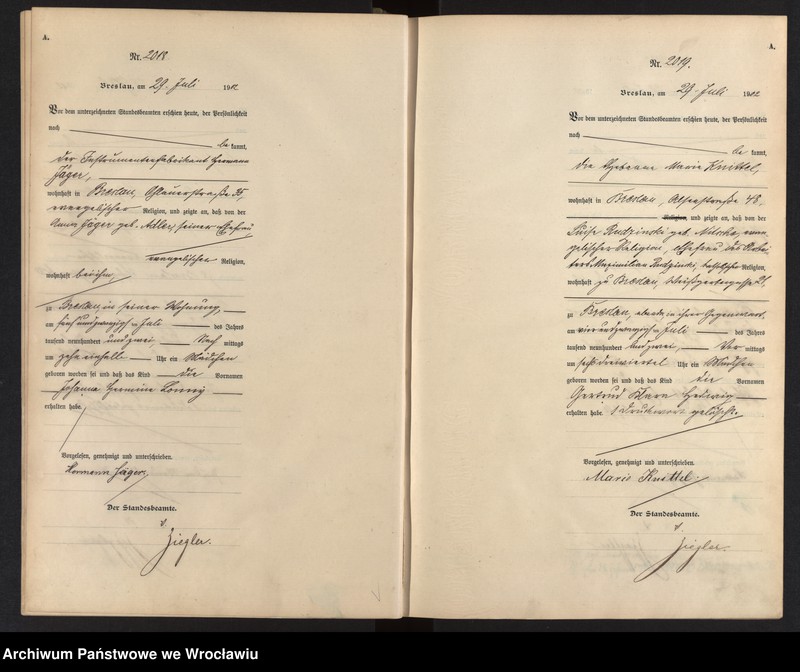 A.
Nr. 2018
Breslau, am 29. Juli 1902
Vor dem unterzeichneten Standesbeamten erschien heute, der Persönlichkeit
nach
be kannt,
der Instrumentenfabrikant Hermann
Jäger,
wohnhaft in Breslau, Ohlauerstraße
evangelischer Religion, und zeigte an, daß von der
Anna Jäger geb. Adler, seiner Ehefrau
evangelischer Religion,
wohnhaft bei ihm,
zu Breslau in seiner Wohnung,
am fünfundzwanzigsten Juli des Jahres
tausend neunhundert und zwei, Nach mittags
um zehneinhalb Uhr ein Mädchen
geboren worden sei und daß das Kind die Vornamen
Johanna Hermine
erhalten habe.
Vorgelesen, genehmigt und unterschrieben.
Hermann Jäger.
Der Standesbeamte.
Ziegler.
A.
Nr. 2019.
Breslau, am 29. Juli 1902
Vor dem unterzeichneten Standesbeamten erschien heute, der Persönlichkeit
nach
be kannt,
die Hebamme Marie Knittel,
wohnhaft in Breslau, Alsenstraße 48,
Religion, und zeigte an, daß von der
Luise Rudzinski geb. Nitschke, evan-
gelischer Religion, Ehefrau des Arbei-
ters Maximilian Rudzinski, katholischer Religion,
wohnhaft zu Breslau, Weißgerbergasse
zu Breslau, ebenda, in ihrer Gegenwart,
am vierundzwanzigsten Juli des Jahres
tausend neunhundert und zwei, Vor mittags
um sechsdreiviertel Uhr ein Mädchen
geboren worden sei und daß das Kind die Vornamen
Gertrud Klara Hedwig
erhalten habe. 1 Druckwort gelöscht.
Vorgelesen, genehmigt und unterschrieben.
Marie Knittel.
Der Standesbeamte.
Ziegler.
Archiwum Państwowe we Wrocławiu